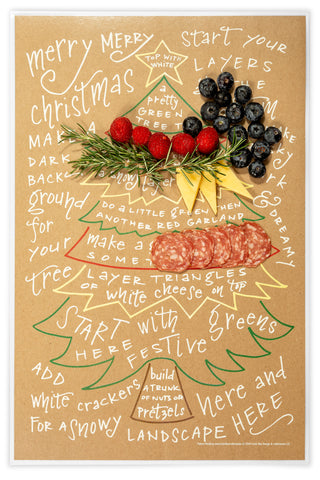 merry MERRY
christmas
TOP WITH
WHITE
start your
LAYERS
a
pretty
GREEN
TREE
MAKE A
DARK
BACK
ground
for
your
tree
a snowy layer
DO a little GREEN then
ANOTHER RED GARLAND
make a
SOME
& DREAMY
LAYER TRIANGLES
OF white cheese on top
START with greens
HERE FESTIVE
ADD
white crackers
FOR a SNOWY
build
A TRUNK
OF NUTS OR
PRETZELS
here and
LANDSCAPE HERE